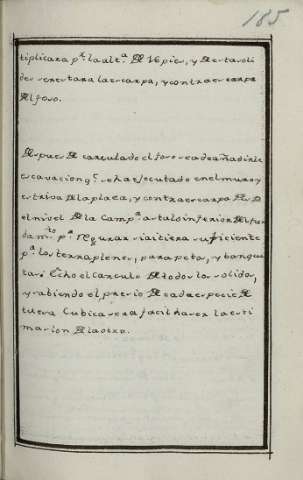 185
tiplicara p.r la alt.a de Vpies, y de esta soli
de se restara la escarpa, y contraescarpa
del foso.
Despues de calculado el foso se ha de añadirle
escavacion q.e se ha ejecutado en el muro y
estriva de la plaza, y contraescarpa
el nivel de la Camp.a asta lo inferior del fun
dam.to p.a regular si ai tierra suficiente
p.a los terraplenes, parapetos, y banque
tas. Echo el calculo de todos los solidos,
y sabiendo el precio de cada especie de
tuesa Cubica sera facil haser la esti
macion de la obra.